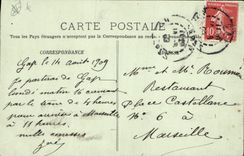 CARTE POSTALE
Tous les Pays étrangers n'acceptent pas la Correspondance au
CORRESPONDANCE
Gap le 14 août 1909
Je partirai de Gap
lundi matin
par le train de 4 heures
pour arriver à Marseille
à 11 heures
mille caresses
Mme et Mr
Restaurant
Place Castellane
N° 6 à
Marseille